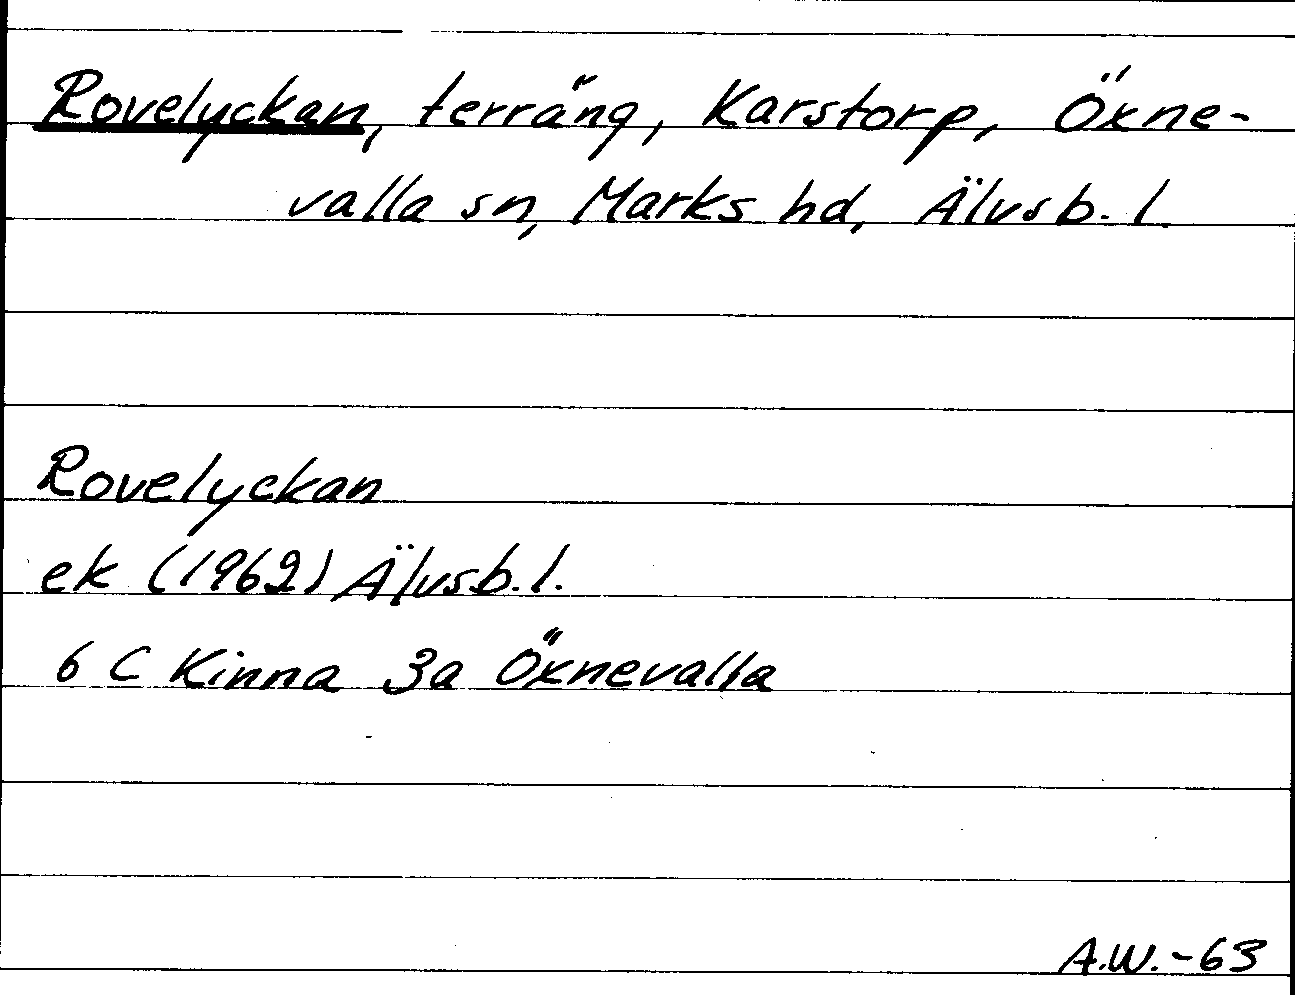 Rovelyckan, terräng, Karstorp, Öxne-
valla sn, Marks hd, Älvsb. l.
Rovelyckan
ek (1962) Älvsb. l.
6 C Kinna 3a Öxnevalla
A.W.-63